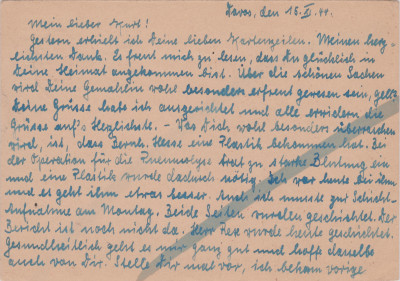 Davos, den 15.XI.44.
Mein lieber Kurt!
Gestern erhielt ich Deine lieben Kartenzeilen. Meinen herz-
lichsten Dank. Es freut mich zu lesen, dass Du glücklich in
Deine Heimat angekommen bist. Über die schönen Sachen
wird Deine Gemahlin wohl besonders erfreut gewesen sein, gell?
Deine Grüsse habe ich ausgerichtet und alle erwidern die
Grüsse auf's Herzlichste. – Was Dich wohl besonders überraschen
wird, ist, dass Bernh. Hesse eine Plastik bekommen hat. Bei
der Operation für die Pneumolyse trat zu starke Blutung ein
und eine Plastik wurde dadurch nötig. Ich war heute bei ihm
und es geht ihm etwas besser. Auch ich musste zur Schicht-
Aufnahme am Montag. Beide Seiten wurden geschichtet. Der
Bericht ist noch nicht da. Herr wurde heute geschichtet.
Gesundheitlich geht es mir ganz gut und hoffe dasselbe
auch von Dir. Stelle Dir mal vor, ich bekam vorige